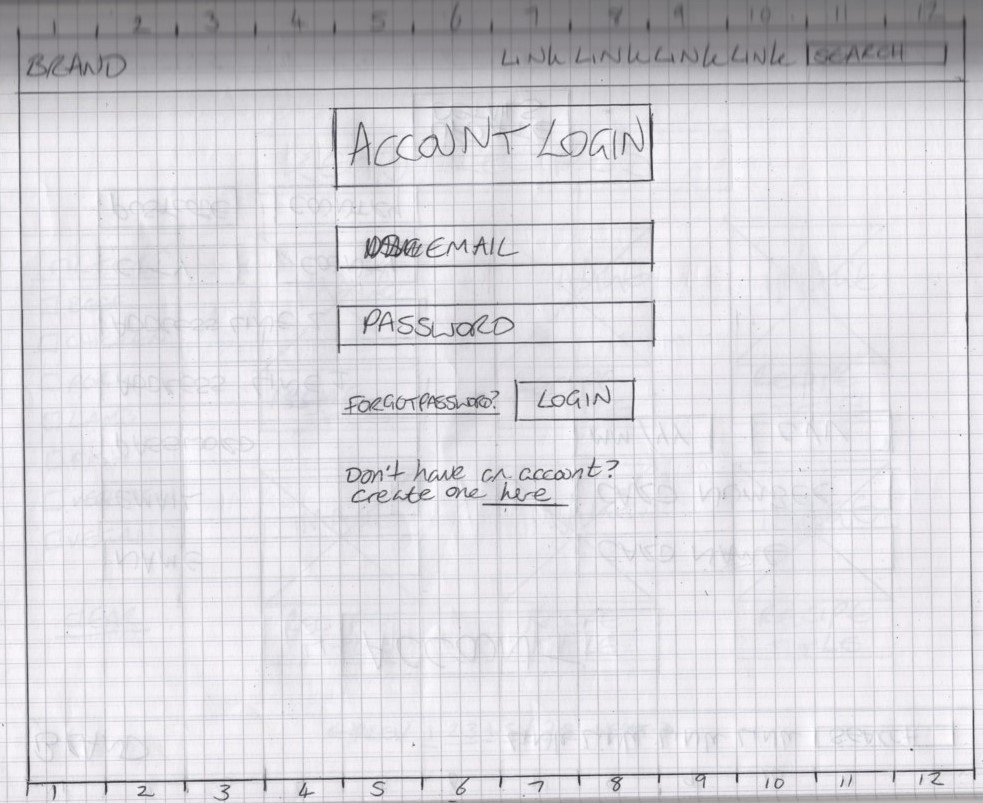 1 2 3 4 5 6 7 8 9 10 11 12
BRAND LINK LINK LINK LINK SEARCH
ACCOUNT LOGIN
EMAIL
PASSWORD
FORGOT PASSWORD? LOGIN
Don't have an account?
create one here
1 2 3 4 5 6 7 8 9 10 11 12